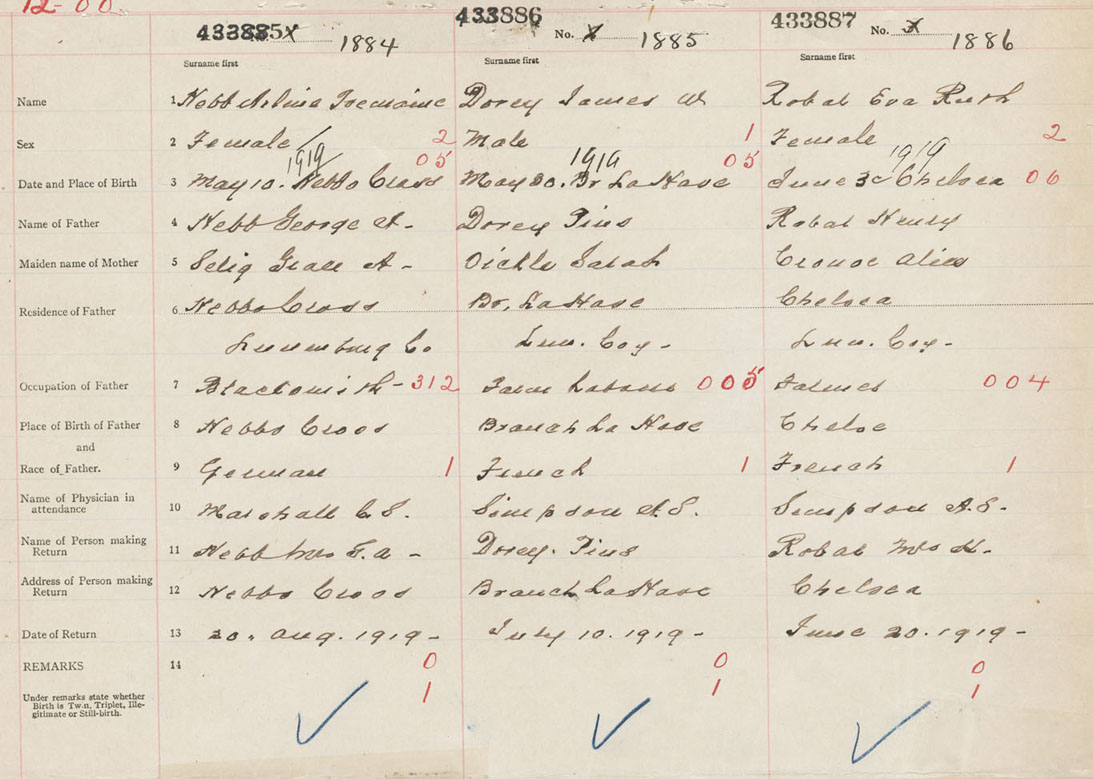 12-00.
433885 1884 433886 No. 1885 433887 No. 1886
Surname first Surname first Surname first
Name 1 Hebb Dorey James W Robar Eva Ruth
Sex 2 Female 2 Male 1 Female 2
1919 05 1919 05 1919
Date and Place of Birth 3 May 10. Hebbs Cross May 30. Br LaHave June 3 Chelsea 06
Name of Father 4 Hebb George A- Dorey Pius Robar Henry
Maiden name of Mother 5 Selig Grace A- Oickle Sarah Crouse Alice
Residence of Father 6 Hebbs Cross Br. LaHave Chelsea
Lunenburg Co Lun. Coy- Lun. Coy-
Occupation of Father 7 Blacksmith-312 Farm Laborer 005 Farmer 004
Place of Birth of Father 8 Hebbs Cross Branch La Have Chelse
and
Race of Father. 9 German 1 French 1 French 1
Name of Physician in attendance 10 Marshall C.S. Simpson A.S. Simpson A.S-
Name of Person making Return 11 Hebb Mrs G.A- Dorey. Pius Robar Mrs H-
Address of Person making Return 12 Hebbs Cross Branch LaHave Chelsea
Date of Return 13 20. Aug. 1919- July 10. 1919- June 20. 1919-
REMARKS 14 0 0 0
1 1 1
Under remarks state whether
Birth is Twin, Triplet, Ille-
gitimate or Still-birth.